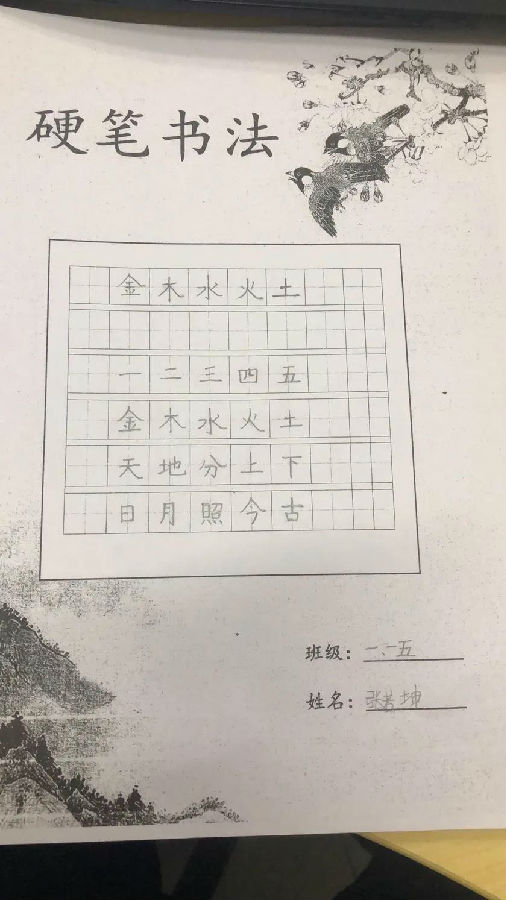 硬笔书法
金木水火土
一二三四五
金木水火土
天地分上下
日月照今古
班级：一、一五
姓名：张若坤